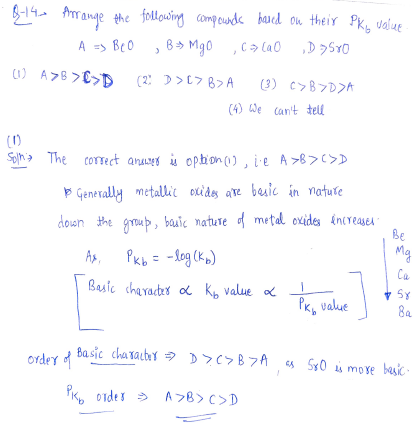 Q-14→ Arrange the following compounds based on their PKb value
A ⇒ BeO , B ⇒ MgO , C ⇒ CaO , D ⇒ SrO
(1) A > B > C > D (2) D > C > B > A (3) C > B > D > A
(4) We can't tell
(1)
Soln:→ The correct answer is option (1) , i.e A > B > C > D
Generally metallic oxides are basic in nature
down the group, basic nature of metal oxides increases.
Be
Mg
Ca
Sr
Ba
As, PKb = -log(Kb)
[ Basic character ∝ Kb value ∝ 1 / PKb value ]
order of Basic character ⇒ D > C > B > A , as SrO is more basic.
PKb order ⇒ A > B > C > D